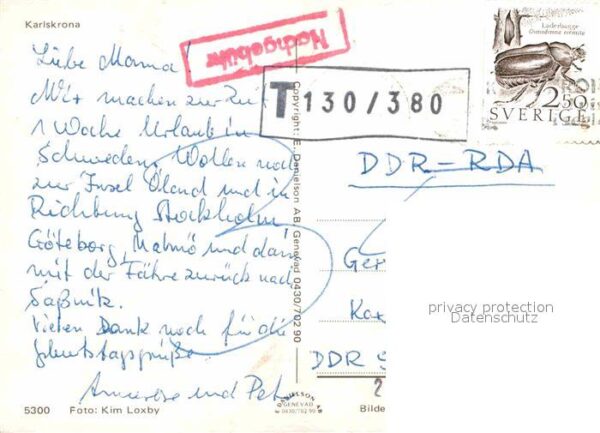 Karlskrona
Liebe Mama!
Wir machen zur Zeit
1 Woche Urlaub in
Schweden. Wollen noch
zur Insel Öland und in
Richtung Stockholm,
Göteborg, Malmö und dann
mit der Fähre zurück nach
Saßnitz.
Vielen Dank noch für die
Geburtstagsgrüße
und Pet
5300 Foto: Kim Loxby
Nachgebühr
T 130/380
Läderbagge
Osmoderma eremita
2.50
SVERIGE
Copyright: E. Danielson AB, Genevad 0430/702 90
DDR-RDA
Ger
Ka
DDR
2
privacy protection
Datenschutz
DANIELSON AB
GENEVAD
0430/702 90
Bilde